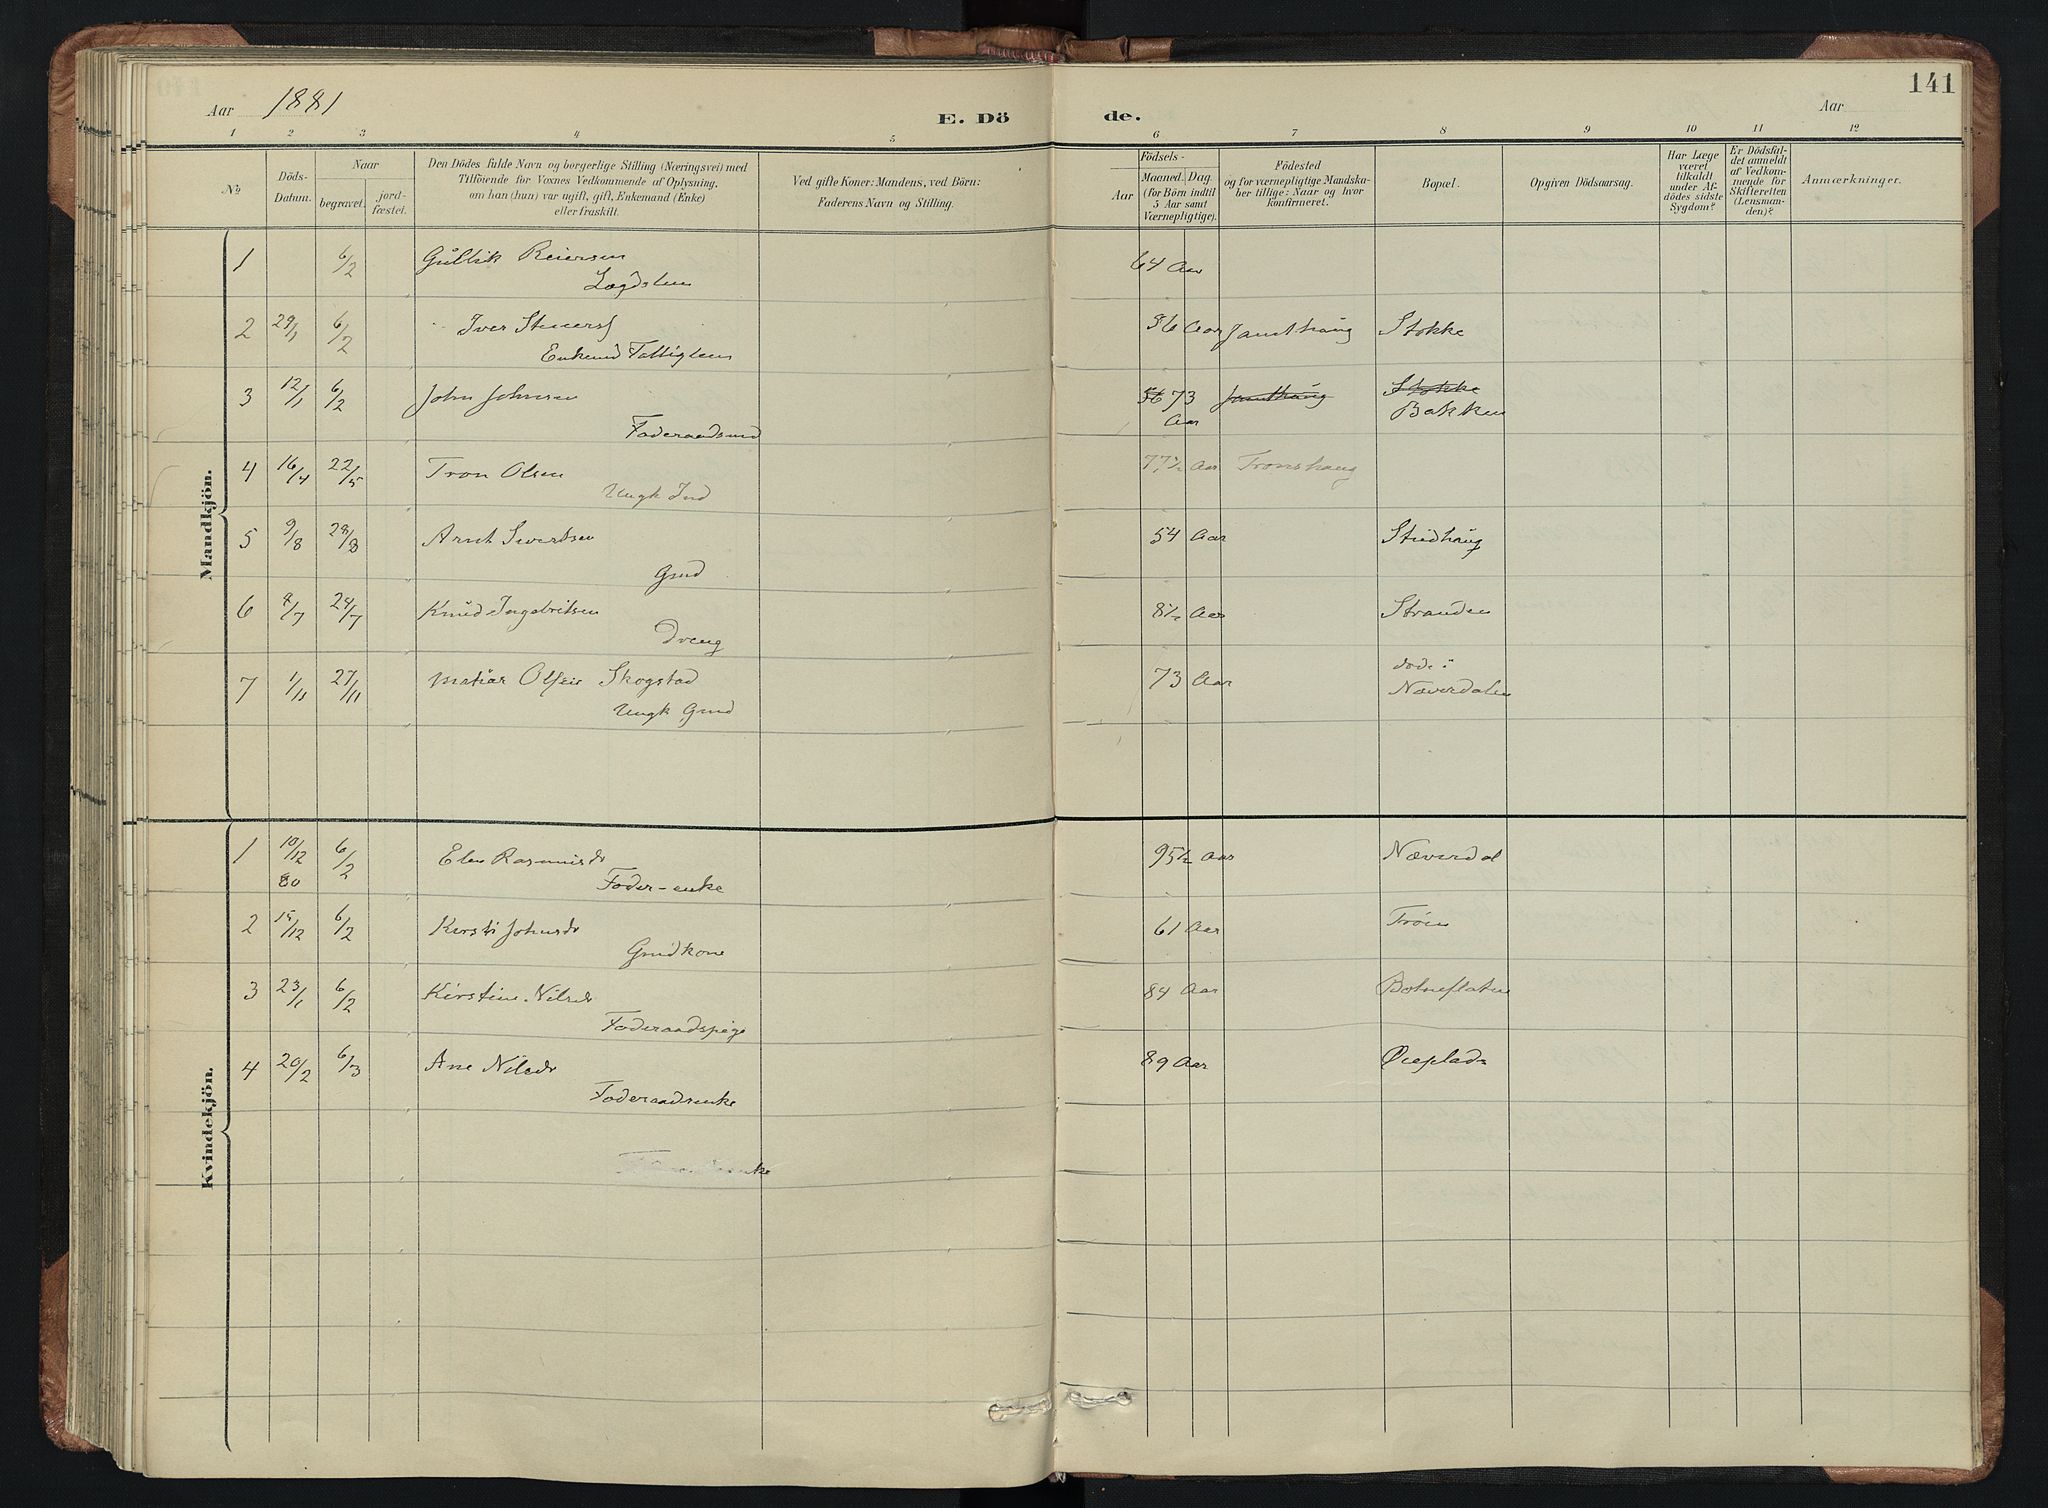 Aar 1881
E. Dö de.
Aar
141
1 2 3 4 5 6 7 8 9 10 11 12
No
Döds-Datum.
Naar
begravet.
jord-fæstet.
Den Dödes fulde Navn og borgerlige Stilling (Næringsvei) med
Tilföiende for Voxnes Vedkommende af Oplysning,
om han (hun) var ugift, gift, Enkemand (Enke)
eller fraskilt.
Ved gifte Koner: Mandens, ved Börn:
Faderens Navn og Stilling.
Födsels-
Aar
Maaned. Dag.
(for Börn indtil
5 Aar samt
Værnepligtige).
Födested
og for værnepligtige Mandska-
ber tillige: Naar og hvor
konfirmeret.
Bopæl.
Opgiven Dödsaarsag.
Har Læge
været
tilkaldt
under Af-
dödes sidste
Sygdom?
Er Dödsfal-
det anmeldt
af Vedkom-
mende for
Skifteretten
(Lensman-
den)?
Anmærkninger.
Mandkjön.
1 6/2 Gullik Reiersen 64 Aar
Lægdslem
2 29/1 6/2 Iver Steners 86 Aar Jamthaug Stokke
Enkemd Fattiglem
3 12/1 6/2 John Johnsen 56 73 Jamthaug Stokke
Aar Bakken
Foderaadsmd
4 16/4 22/5 Tron Olsen 77½ Aar Tronshaug
Ungk Ind
5 9/8 28/8 Arnt Sivertsen 54 Aar Studhaug
Gmd
6 8/7 24/7 Knud Ingebritsen 8½ Aar Stranden
Dreng
7 1/11 27/11 Matias Olsen Skogstad 73 Aar døde i
Næverdalen
Ungk Gmd
Kvindekjön.
1 10/12 80 6/2 Elen Rasmusdr 95½ Aar Næverdal
Foder-enke
2 15/12 6/2 Kersti Johnsdr 61 Aar Trøen
Gmdkone
3 23/1 6/2 Kirstine Nilsdr 84 Aar Botneflaten
Foderaadspige
4 20/2 6/3 Ane Nilsdr 89 Aar Øieplads
Foderaadsenke